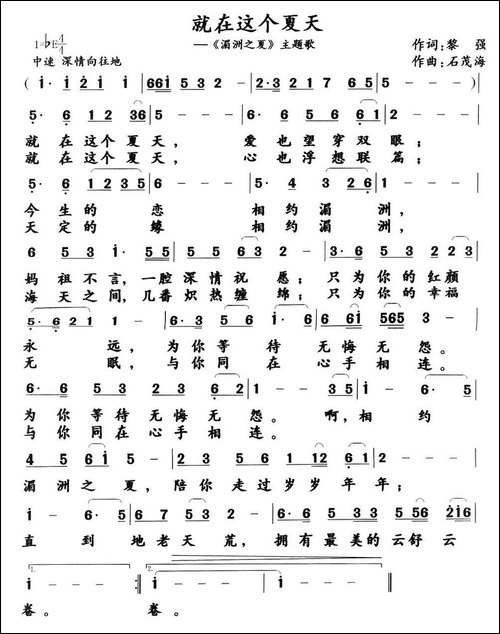 就在这个夏天
—《湄洲之夏》主题歌
1=♭E 4/4
作词：黎 强
中速 深情向往地
作曲：石茂海
( i · i 2 i i | 6 6 i 5 3 5 - | 0 2 5 3 2 i 6 | 5 - - - )
5 · 6 1 2 3 6 | 5 - - - | 6 · i 2 3 2 1 6 | 2 - - - |
就 在 这 个 夏 天， 爱 也 望 穿 双 眼；
就 在 这 个 夏 天， 心 也 浮 想 联 篇；
5 · 6 1 2 3 5 | 6 - - - | 5 · 4 3 2 6 | 1 - - - |
今 生 的 恋 相 约 湄 洲，
天 定 的 缘 相 约 湄 洲，
6 5 3 i · | 5 5 5 6 6 3 2 - | 3 · 6 5 3 2 2 3 |
妈 祖 不 言，一 腔 深 情 祝 愿； 只 为 你 的 红 颜
海 天 之 间，几 番 炽 热 缠 绵； 只 为 你 的 幸 福
5 · 6 2 1 1 - | 6 · 3 5 6 i · | 6 6 i 5 6 5 3 - |
永 远，为 你 等 待 无 悔 无 怨。
无 眠，与 你 同 在 心 手 相 连。
6 · 6 · 3 | 2 2 3 · | 2 3 6 2 1 - | 1 - - 3 5 | i - 6 · 5 |
为 你 等 待 无 悔 无 怨。 啊，相 约
与 你 同 在 心 手 相 连。
4 5 6 i · 6 | 5 - - - | 2 3 5 6 i · | 2 4 3 1 2 6 1 2 - |
湄 洲 之 夏，陪 你 走 过 岁 岁 年 年；
i - 6 · 5 | 6 7 7 5 3 - | 0 2 5 3 3 3 5 5 6 2 i 6 |
直 到 地 老 天 荒，拥 有 最 美 的 云 舒 云
1. 2.
i - - - :| i - - - | i - - - | i - - - ||
卷。 卷。